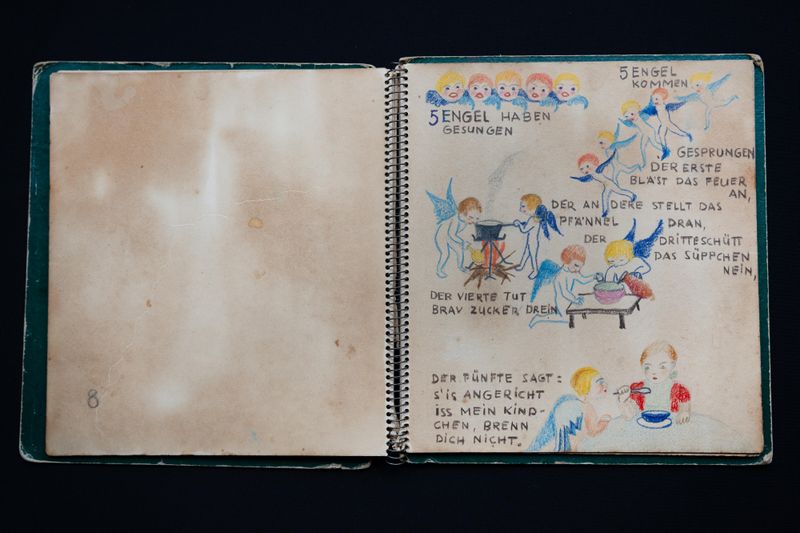 8
5 ENGEL HABEN
GESUNGEN
5 ENGEL
KOMMEN
GESPRUNGEN
DER ERSTE
BLÄST DAS FEUER
AN,
DER AN DERE STELLT DAS
PFÄNNEL DRAN,
DER DRITTESCHÜTT
DAS SÜPPCHEN
NEIN,
DER VIERTE TUT
BRAV ZUCKER DREIN
DER FÜNFTE SAGT:
S'IS ANGERICHT
ISS MEIN KIND-
CHEN, BRENN
DICH NICHT.